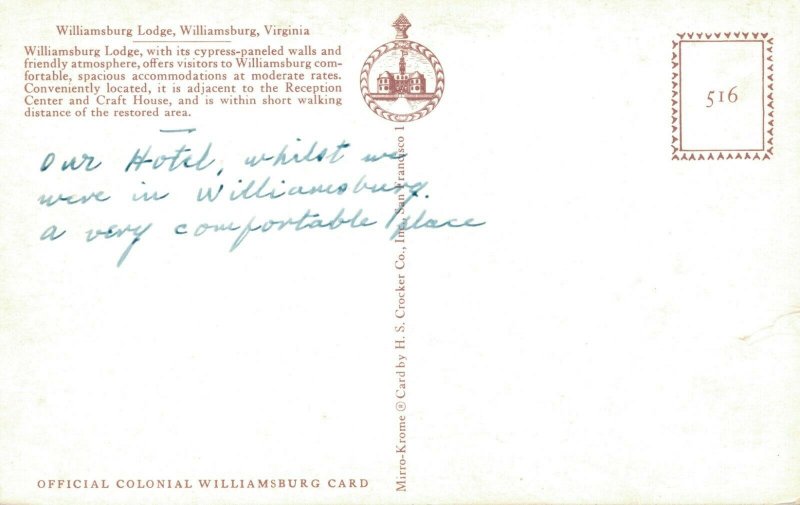 Williamsburg Lodge, Williamsburg, Virginia
Williamsburg Lodge, with its cypress-paneled walls and
friendly atmosphere, offers visitors to Williamsburg com-
fortable, spacious accommodations at moderate rates.
Conveniently located, it is adjacent to the Reception
Center and Craft House, and is within short walking
distance of the restored area.
516
Our Hotel, whilst we
were in Williamsburg.
a very comfortable place
Mirro-Krome ® Card by H. S. Crocker Co., Inc., San Francisco 1
OFFICIAL COLONIAL WILLIAMSBURG CARD